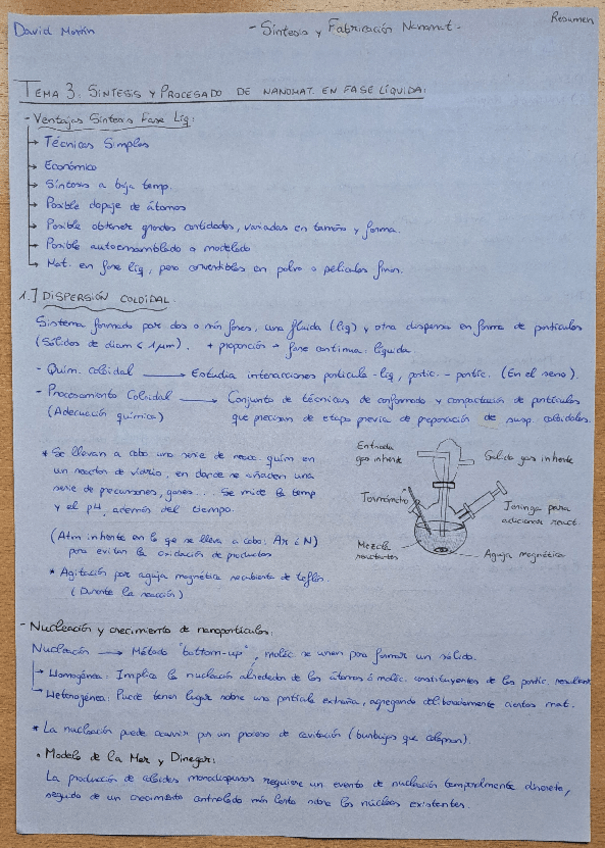 David Morán
- Síntesis y Fabricación Nanomat.
Resumen
TEMA 3: SÍNTESIS Y PROCESADO DE NANOMAT. EN FASE LÍQUIDA:
- Ventajas Síntesis Fase Líq:
→ Técnicas Simples
→ Económico
→ Síntesis a baja temp.
→ Posible dopaje de átomos
→ Posible obtener grandes cantidades, variadas en tamaño y forma.
→ Posible autoensamblado o modelado
→ Mat. en fase líq, pero convertibles en polvo o películas finas.
1.] DISPERSIÓN COLOIDAL.
Sistema formado por dos o más fases, una fluida (líq) y otra dispersa en forma de partículas
(Sólidos de diam < 1μm). + proporción → fase continua: líquida.
- Quím. coloidal → Estudia interacciones partícula-líq, partíc. - partíc. (En el seno).
- Procesamiento Coloidal → Conjunto de técnicas de conformado y compactación de partículas
(Adecuación química) que precisan de etapa previa de preparación de susp. coloidales.
* Se llevan a cabo una serie de reacc. quím en
un reactor de vidrio, en donde se añaden una
serie de precursores, gases... Se mide la temp
y el pH, además del tiempo.
(Atm inherte en la qe se lleva a cabo: Ar ó N)
para evitar la oxidación de productos
* Agitación por aguja magnética recubierta de teflón.
(Durante la reacción)
Entrada
gas inherte
Salida gas inherte
Termómetro
Jeringa para
adicionar react.
Mezcla
reactantes
Aguja magnética
- Nucleación y crecimiento de nanopartículas:
Nucleación → Método "bottom-up", moléc. se unen para formar un sólido.
→ Homogénea: Implica la nucleación alrededor de los átomos ó moléc. constituyentes de las partíc. resultant.
→ Heterogénea: Puede tener lugar sobre una partícula extraña, agregando deliberadamente ciertos mat.
* La nucleación puede ocurrir por un proceso de cavitación (burbujas que colapsan).
• Modelo de La Mer y Dinegar:
La producción de coloides monodispersos requiere un evento de nucleación temporalmente discreto,
seguido de un crecimiento controlado más lento sobre los núcleos existentes.